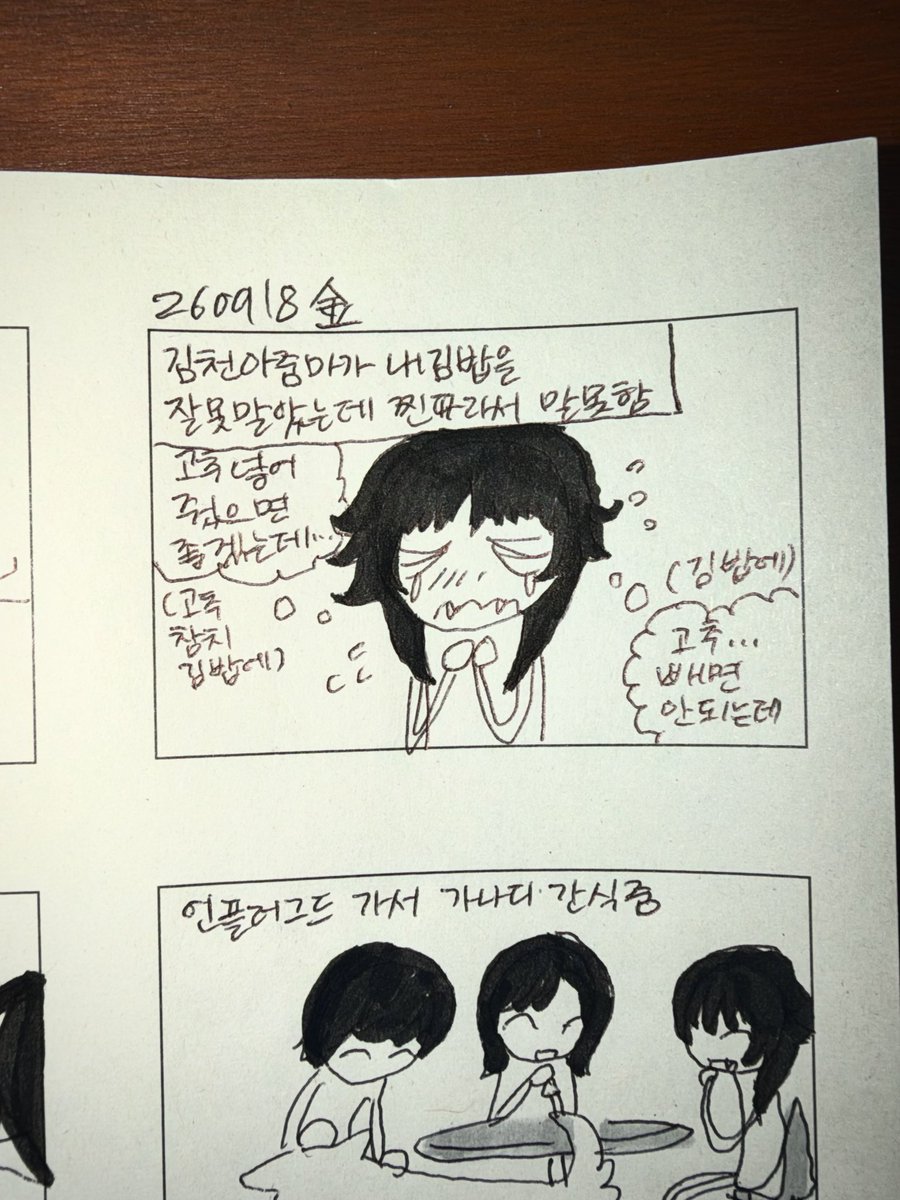 260918 金
김천아줌마가 내김밥을
잘못말았는데 찐따라서 말못함
고추넣어
주셨으면
좋겠는데...
(고추
참치
김밥에)
(김밥에)
고추...
빼면
안되는데
언플러그드 가서 가나디 간식줌